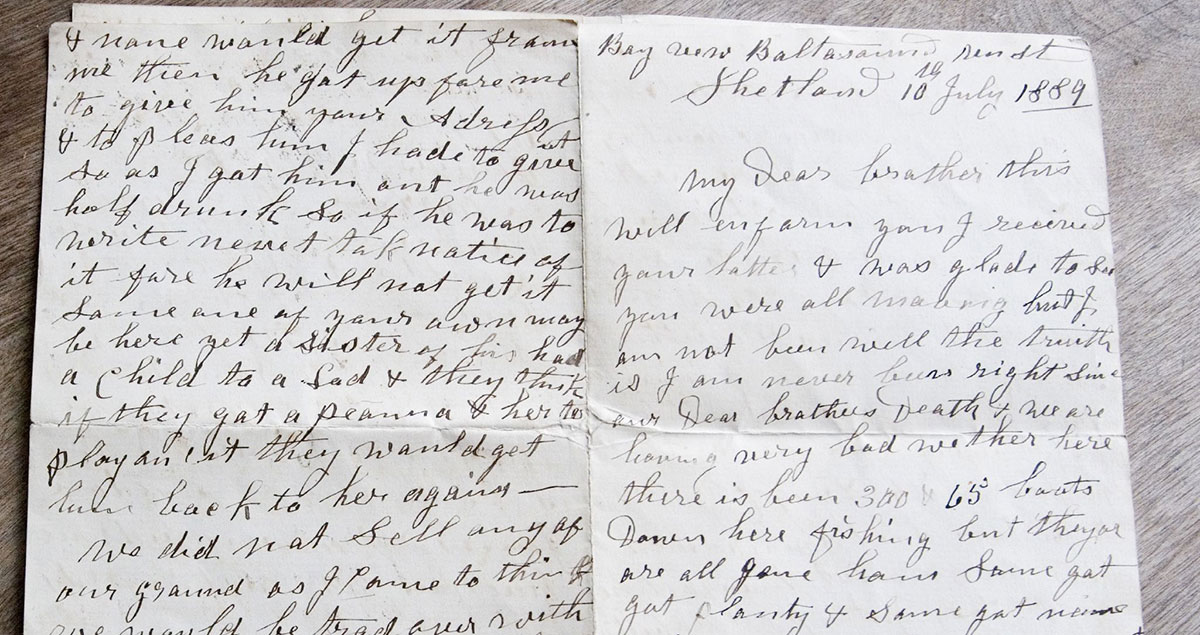 & none would get it fram
me then he gat up fare me
to give him your Adress
& to pleas him I hade to give it
so as I gat him out he was
half drunk so if he was to
write never tak natice of
it fare he will not get it
same one of yaur awn may
be here yet a Sister of his had
a Child to a Lad & they think
if they gat a peanna & her to
play an it they wauld get
him back to her again —
we did nat Sell any af
our ground as I Came to think
we would be trad over with
Bay view Baltasaund
Shetland 10 July 1889
My Dear brather this
will enfarm you I recieved
your latter & was glade to See
you were all maving but I
am not been well the truith
is I am never been right Since
our Dear brathers Death & we are
having very bad wether here
there is been 300 & 65 boats
Down here fishing but they ar
are all gone ham Same gat
gat planty & Same gat nane